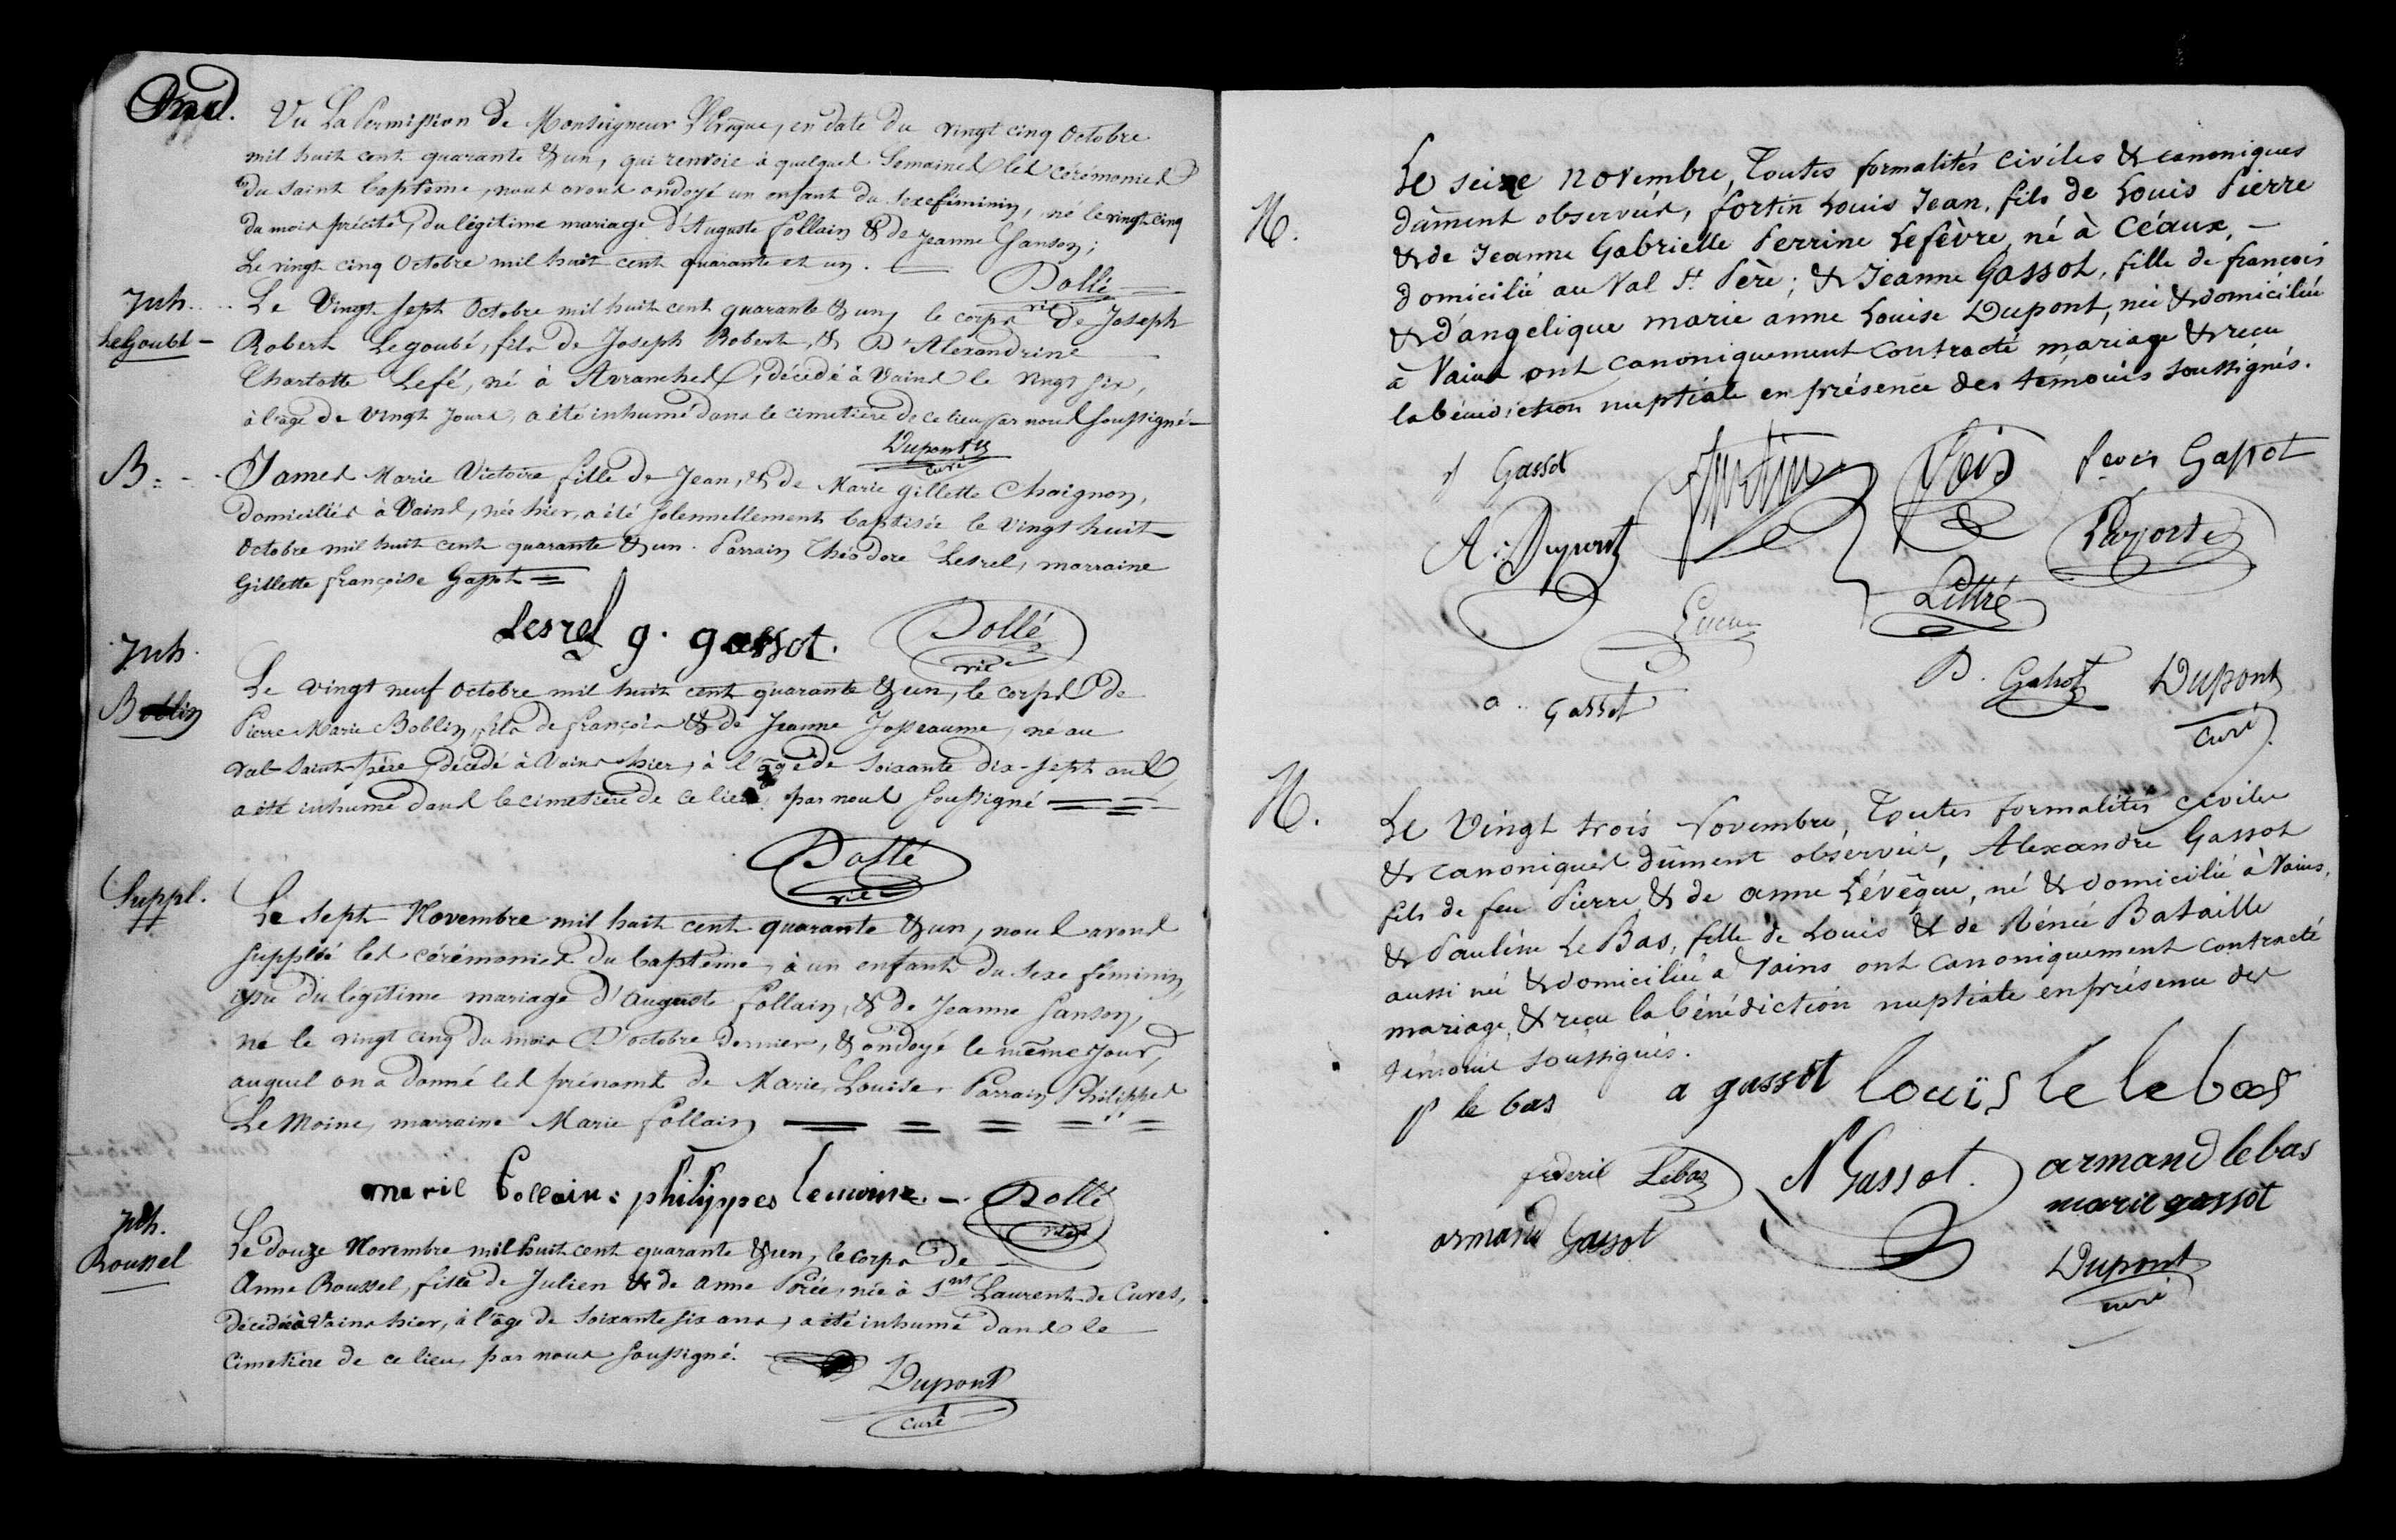 Ond.
Vu La Permission de Monseigneur l'Evêque, en date du vingt cinq Octobre
mil huit cent quarante & un, qui renvoie à quelques Semaines les cérémonies
du saint baptême, nous avons ondoyé un enfant du sexe féminin, né le vingt cinq
du mois précité, du légitime mariage d'Auguste Follain & de Jeanne Sanson;
Le vingt cinq Octobre mil huit cent quarante et un.
Dollé
vic
Inh.
LeGoubé
Le Vingt Sept Octobre mil huit cent quarante & un, le corps de Joseph
Robert Legoubé, fils de Joseph Robert, & D'Alexandrine
Charlotte Lefé, né à Avranches, décédé à Vains le vingt six,
à l'âge de vingt jours, a été inhumé dans le cimetière de ce lieu par nous soussigné
Dupont
curé
B.
James Marie Victoire fille de Jean, & de Marie Gillette Chaignon,
domiciliés à Vains, née hier, a été solennellement baptisée le vingt huit
Octobre mil huit cent quarante & un. Parrain Théodore Lesrel, marraine
Gillette françoise Gassot
Lesrel g. gassot. Dollé
vic
Inh.
Boblin
Le vingt neuf Octobre mil huit cent quarante & un, le corps de
Pierre Marie Boblin, fils de françois & de Jeanne Josseaume, né au
Val-Saint-père, décédé à Vains hier, à l'âge de soixante dix-sept ans,
a été inhumé dans le cimetière de ce lieu par nous soussigné
Dollé
vic
Suppl.
Le sept Novembre mil huit cent quarante & un, nous avons
suppléé les cérémonies du baptême, à un enfant du sexe féminin,
issu du légitime mariage d'Auguste Follain, & de Jeanne Sanson,
né le vingt cinq du mois D'octobre dernier, & ondoyé le même jour,
auquel on a donné les prénoms de Marie Louise. Parrain Philippes
Le Moine, marraine Marie Follain
marie follain : philippes lemoine. Dollé
vic
Inh.
Roussel
Le douze Novembre mil huit cent quarante & un, le corps de
Anne Roussel, fille de Julien & de Anne Poree, née à St Laurent de Cuves,
décédée à Vains hier, à l'âge de soixante six ans, a été inhumé dans le
Cimetière de ce lieu, par nous soussigné.
Dupont
curé
M.
Le seize Novembre, Toutes formalités civiles & canoniques
dûment observées, fortin Louis Jean, fils de Louis Pierre
& de Jeanne Gabrielle Perrine Lefèvre, né à Céaux,
domicilié au Val St Père; & Jeanne Gassot, fille de françois
& d'angelique marie anne Louise Dupont, née & domiciliée
à Vains ont canoniquement contracté mariage & reçu
la bénédiction nuptiale en présence des témoins soussignés.
j Gassot fortin Gassot
A. Dupont Laporte
Littré
a. Gassot P. Gassot Dupont
curé
M.
Le Vingt trois Novembre, Toutes formalités civiles
& canoniques dûment observées, Alexandre Gassot
fils de feu Pierre & de anne Lévêque, né & domicilié à Vains,
& Pauline Le Bas, fille de Louis & de Rénée Bataille
aussi née & domiciliée à Vains ont canoniquement contracté
mariage, & reçu la bénédiction nuptiale en présence des
témoins soussignés.
p le bas a gassot louis le lebas
Lebas N Gassot. armand lebas
armand Gassot marie gassot
Dupont
curé